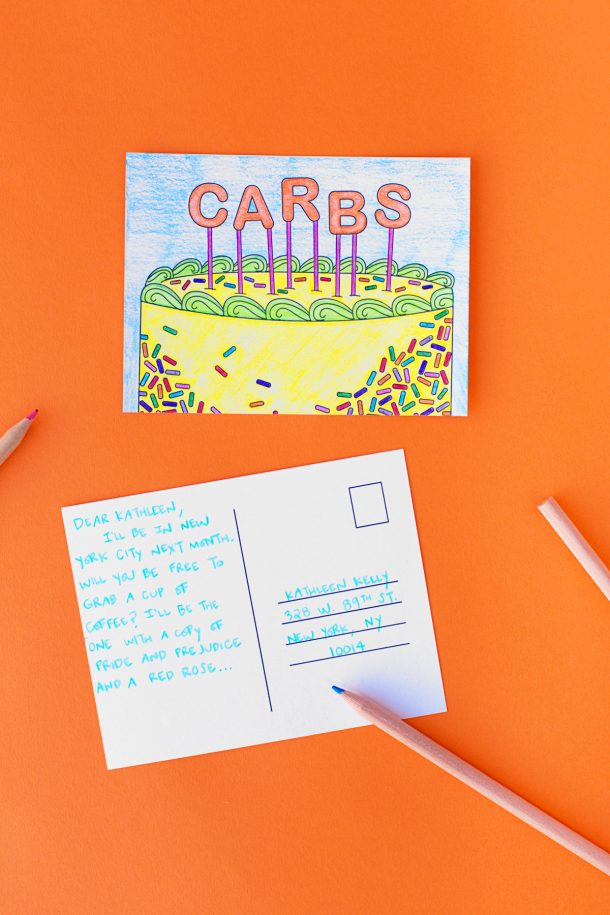 CARBS
DEAR KATHLEEN,
I'LL BE IN NEW
YORK CITY NEXT MONTH.
WILL YOU BE FREE TO
GRAB A CUP OF
COFFEE? I'LL BE THE
ONE WITH A COPY OF
PRIDE AND PREJUDICE
AND A RED ROSE...
KATHLEEN KELLY
328 W. 89TH ST.
NEW YORK, NY
10014